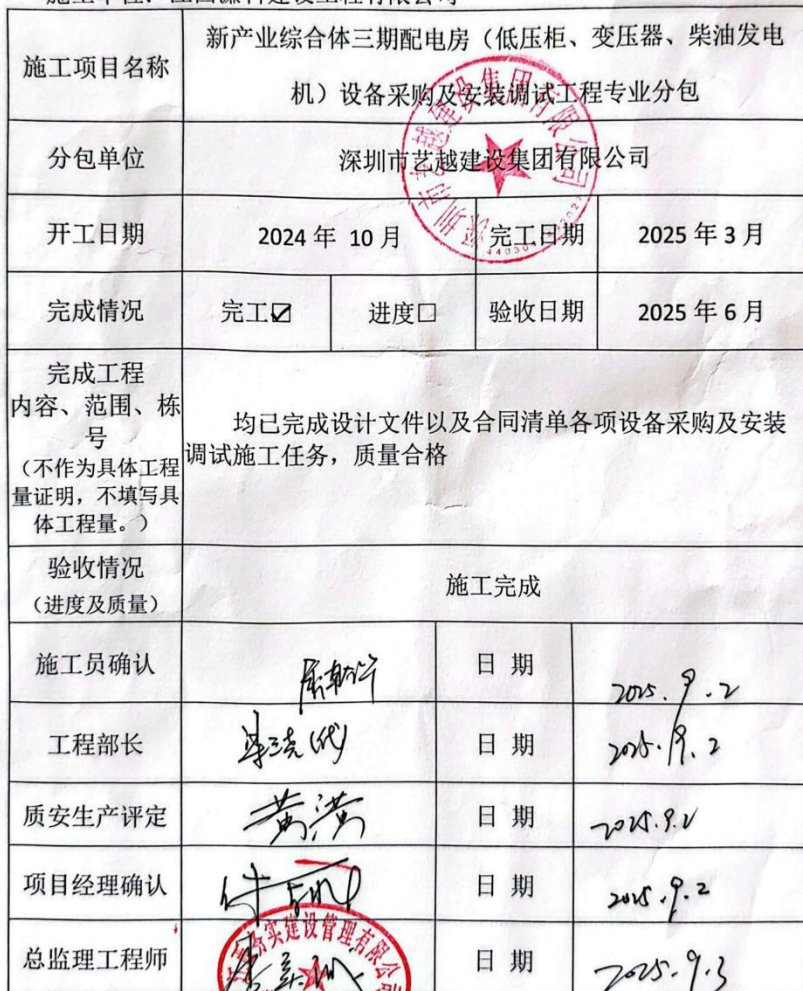 新产业综合体三期配电房（低压柜、变压器、柴油发电
施工项目名称
机）设备采购及安装调试工程专业分包
分包单位 深圳市艺越建设集团有限公司
深圳市艺越建设集团有限公司
开工日期 2024 年 10 月 完工日期 2025 年 3 月
完成情况 完工☑ 进度□ 验收日期 2025 年 6 月
完成工程
内容、范围、栋
号
（不作为具体工程
量证明，不填写具
体工程量。）
均已完成设计文件以及合同清单各项设备采购及安装
调试施工任务，质量合格
验收情况
（进度及质量）
施工完成
施工员确认 日 期 2025.9.2
工程部长 (代) 日 期 2025.9.2
质安生产评定 黄潢 日 期 2025.9.2
项目经理确认 日 期 2025.9.2
总监理工程师 日 期 2025.9.3
实建设管理有限公司